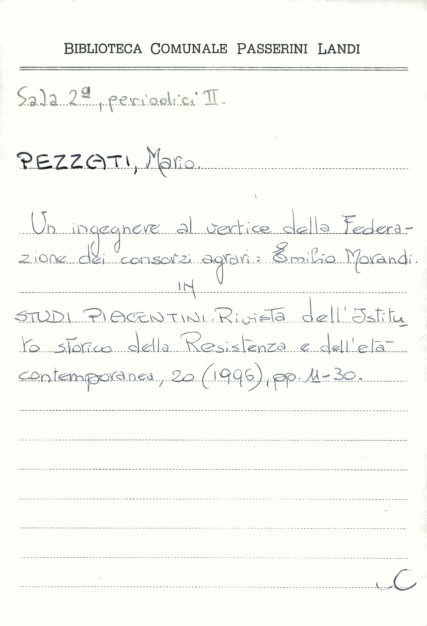 BIBLIOTECA COMUNALE PASSERINI LANDI
Sala 2ª, periodici II.
PEZZATI, Mario.
Un ingegnere al vertice della Federa-
zione dei consorzi agrari: Emilio Morandi.
IN
STUDI PIACENTINI. Rivista dell'Istitu
to storico della Resistenza e dell'età
contemporanea, 20 (1996), pp. 11-30.
C